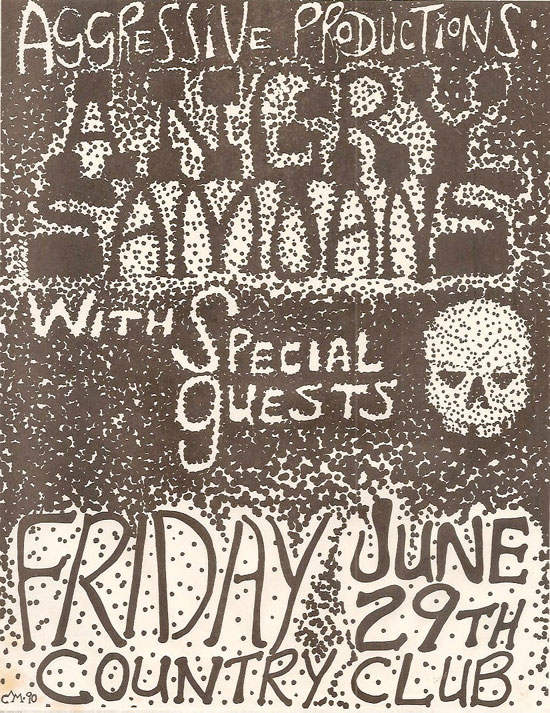 AGGRESSIVE PRODUCTIONS:
ANGRY
SAMOANS
WITH SPECIAL
GUESTS
FRIDAY JUNE
29TH
COUNTRY CLUB
CM·90